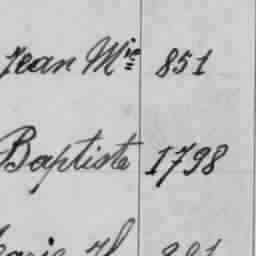 Jean Mie 851
Baptiste 1798